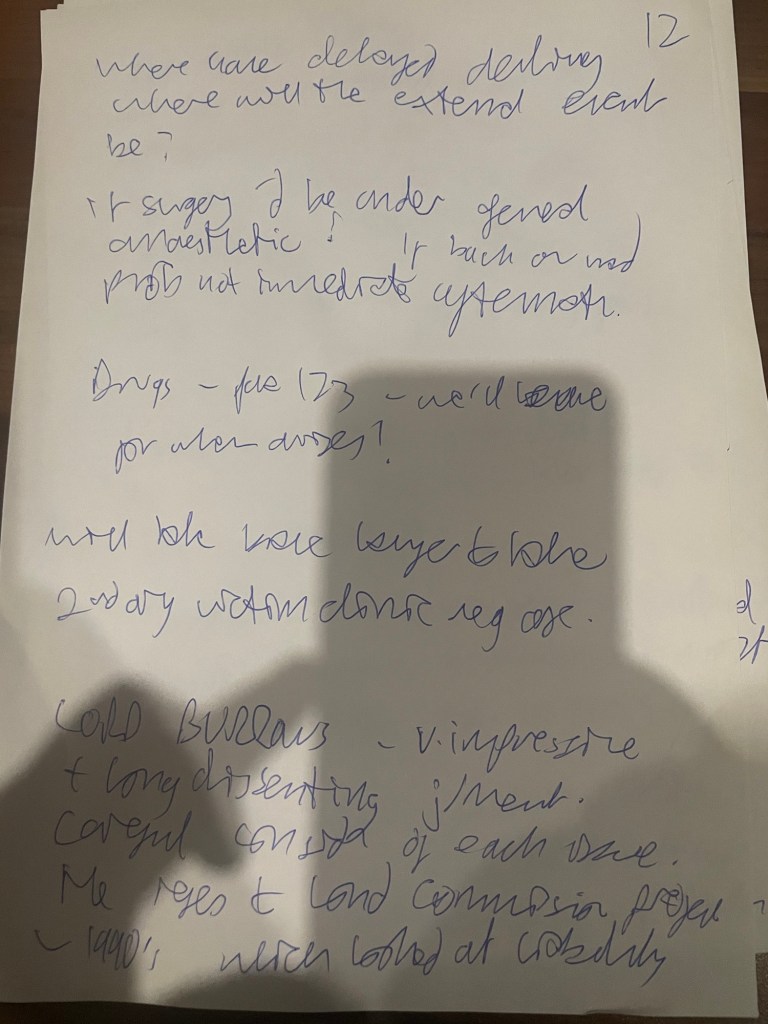 12
where have delayed
where will the extend event
be?
if surgery I'd be under general
anaesthetic! If back or
prob not immediate aftermath.
Drugs - para 123 - we'll
for when arises!
will have longer to
2ndary victim clinic neg case.
LORD BURROWS - v. impressive
+ long dissenting j/ment.
Careful consid of each issue.
He refers to Law Commission project
- 1990's which looked at liability